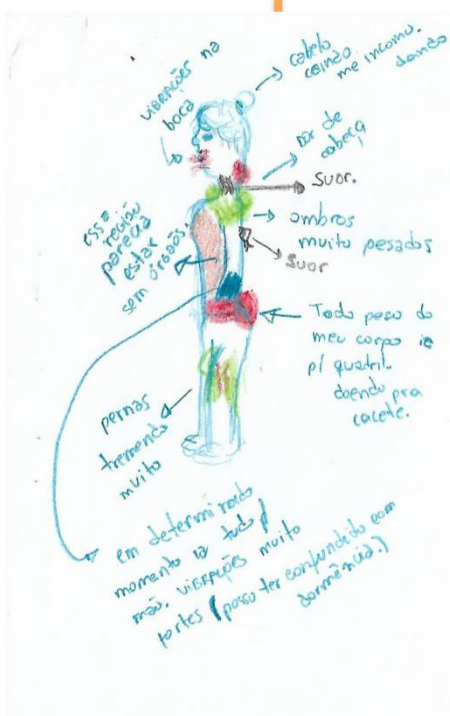 cabelo
caindo
me incomo.
dando
vibrações na
boca
Dor de
cabeça
Suor.
ombros
muito pesados
Suor
essa
região
parecia
estar
sem órgãos.
Todo peso do
meu corpo ia
p/ quadril.
doendo pra
cacete.
pernas
tremendo
muito
em determinado
momento ia tudo p/
mão. vibrações muito
fortes (posso ter confundido com
dormência.)